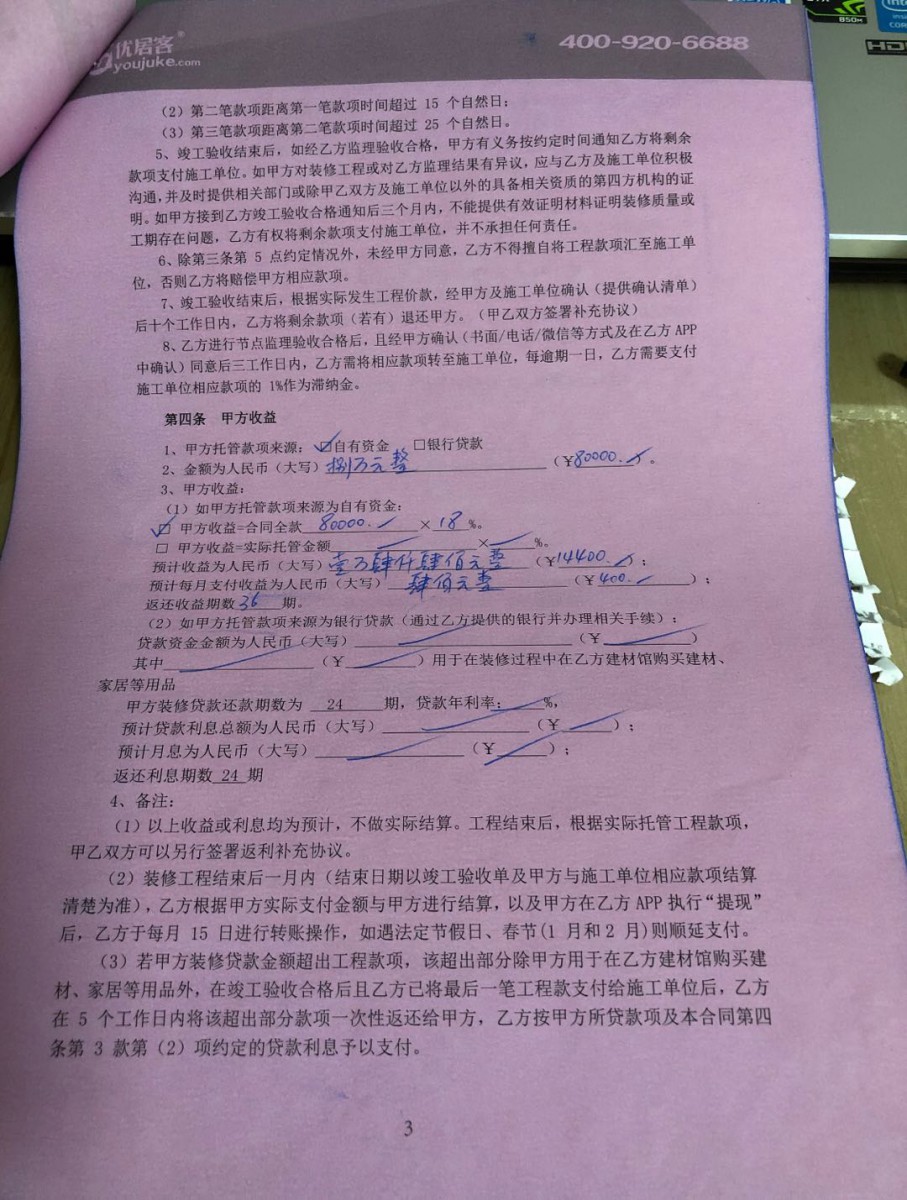 优居客®
youjuke.com
400-920-6688
850M
(2) 第二笔款项距离第一笔款项时间超过 15 个自然日;
(3) 第三笔款项距离第二笔款项时间超过 25 个自然日。
5、竣工验收结束后，如经乙方监理验收合格，甲方有义务按约定时间通知乙方将剩余
款项支付施工单位。如甲方对装修工程或对乙方监理结果有异议，应与乙方及施工单位积极
沟通,并及时提供相关部门或除甲乙双方及施工单位以外的具备相关资质的第四方机构的证
明。如甲方接到乙方竣工验收合格通知后三个月内，不能提供有效证明材料证明装修质量或
工期存在问题，乙方有权将剩余款项支付施工单位，并不承担任何责任。
6、除第三条第 5 点约定情况外，未经甲方同意，乙方不得擅自将工程款项汇至施工单
位，否则乙方将赔偿甲方相应款项。
7、竣工验收结束后，根据实际发生工程价款，经甲方及施工单位确认（提供确认清单）
后十个工作日内，乙方将剩余款项（若有）退还甲方。（甲乙双方签署补充协议）
8、乙方进行节点监理验收合格后，且经甲方确认（书面/电话/微信等方式及在乙方 APP
中确认）同意后三工作日内，乙方需将相应款项转至施工单位，每逾期一日，乙方需要支付
施工单位相应款项的 1%作为滞纳金。
第四条 甲方收益
1、甲方托管款项来源：☑自有资金 □银行贷款
2、金额为人民币（大写）捌万元整（￥80000.）。
3、甲方收益：
(1) 如甲方托管款项来源为自有资金：
☑ 甲方收益=合同全款 80000. × 18 %。
□ 甲方收益=实际托管金额 × %。
预计收益为人民币（大写）壹万肆仟肆佰元整（￥14400.）；
预计每月支付收益为人民币（大写）肆佰元整（￥400.）；
返还收益期数 36 期。
(2) 如甲方托管款项来源为银行贷款（通过乙方提供的银行并办理相关手续）：
贷款资金金额为人民币（大写）（￥ ）
其中 （￥ ）用于在装修过程中在乙方建材馆购买建材、
家居等用品
甲方装修贷款还款期数为 24 期，贷款年利率： %，
预计贷款利息总额为人民币（大写）（￥ ）；
预计月息为人民币（大写）（￥ ）；
返还利息期数 24 期
4、备注：
(1) 以上收益或利息均为预计，不做实际结算。工程结束后，根据实际托管工程款项，
甲乙双方可以另行签署返利补充协议。
(2) 装修工程结束后一月内（结束日期以竣工验收单及甲方与施工单位相应款项结算
清楚为准），乙方根据甲方实际支付金额与甲方进行结算，以及甲方在乙方 APP 执行“提现”
后，乙方于每月 15 日进行转账操作，如遇法定节假日、春节(1 月和 2 月)则顺延支付。
(3) 若甲方装修贷款金额超出工程款项，该超出部分除甲方用于在乙方建材馆购买建
材、家居等用品外，在竣工验收合格后且乙方已将最后一笔工程款支付给施工单位后，乙方
在 5 个工作日内将该超出部分款项一次性返还给甲方，乙方按甲方所贷款项及本合同第四
条第 3 款第（2）项约定的贷款利息予以支付。
3